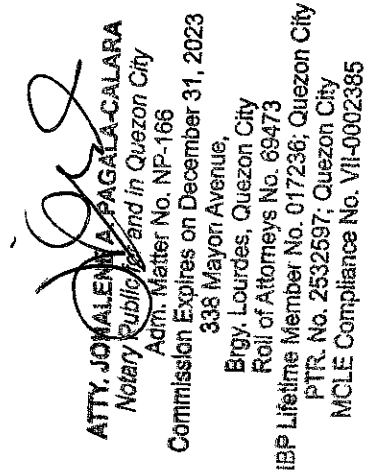 ATTY. JOMALEN A. PAGALA-CALARA
Notary Public for and in Quezon City
Adm. Matter No. NP-166
Commission Expires on December 31, 2023
338 Mayon Avenue,
Brgy. Lourdes, Quezon City
Roll of Attorneys No. 69473
IBP Lifetime Member No. 017236; Quezon City
PTR. No. 2532597; Quezon City
MCLE Compliance No. VII-0002385